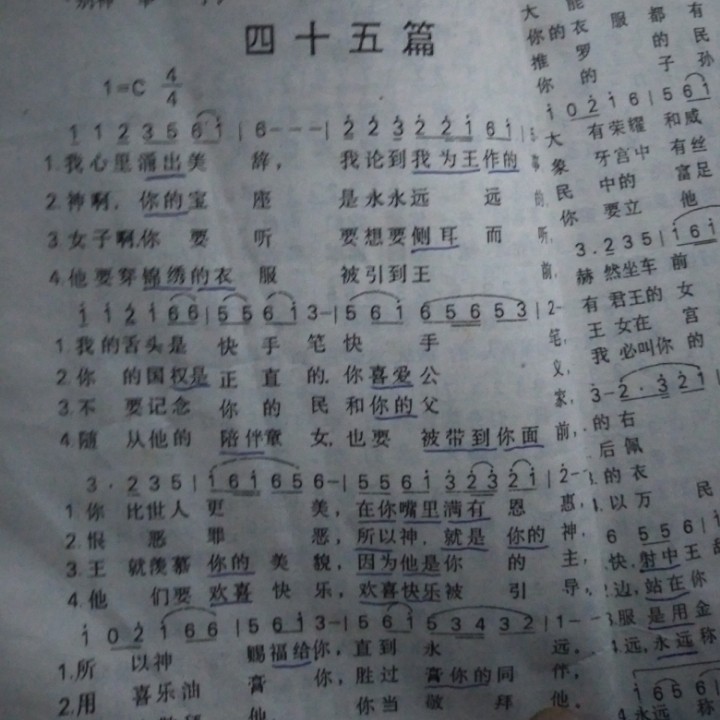 四十五篇
1=C 4/4
1 1 2 3 5 6 1 | 6 - - - | 2 2 3 2 2 1 6 1 |
1.我心里涌出美 辞， 我论到我为王作的
2.神啊，你的宝 座 是永永远 远 的，
3.女子啊，你 要 听 要想要侧耳 而 听，
4.他要穿锦绣的衣 服 被引到王 前，
1 1 2 1 6 6 | 5 5 6 1 3 - | 5 6 1 6 5 6 5 3 | 2 -
1.我的舌头是 快 手 笔 快 手 笔，
2.你 的国权是 正 直 的，你喜爱 公 义，
3.不 要记念 你 的 民 和你的父 家，
4.随 从他的 陪伴童 女，也要 被带到你面 前，
3 · 2 3 5 | 1 6 1 6 5 6 - | 5 5 6 1 3 2 3 2 1 | 2 -
1.你 比世人 更 美，在你嘴里满有 恩 惠，
2.恨 恶 罪 恶，所以神，就是 你的 神，
3.王 就羡慕 你的 美 貌，因为他是你 的 主，
4.他 们要 欢喜 快 乐，欢喜快乐被 引 导，
1 0 2 1 6 6 | 5 6 1 3 - | 5 6 1 5 3 4 3 2 | 1 - -
1.所 以神 赐福给你，直到 永 远。
2.用 喜乐油 膏 你，胜过 膏你的同 伴，
他， 你当 敬 拜 他。
大 能
你的衣 服 都 有
推 罗 的 民
你 的 子 孙
1 0 2 1 6 | 5 6 1
大 有荣耀 和威
象 牙宫中 有丝
民 中的 富足
你 要立 他
3 . 2 3 5 | 1 6 1
赫 然坐车 前
有 君王的 女
王 女在 宫
我 必叫你 的
3 - 2 · 3 2 1 |
的 右
后 佩
的 衣
4.以 万 民
6 5 5 6 |
快，射中王
边，站在你
服 是用金
远，永远称
1 6 5 6
永远 称